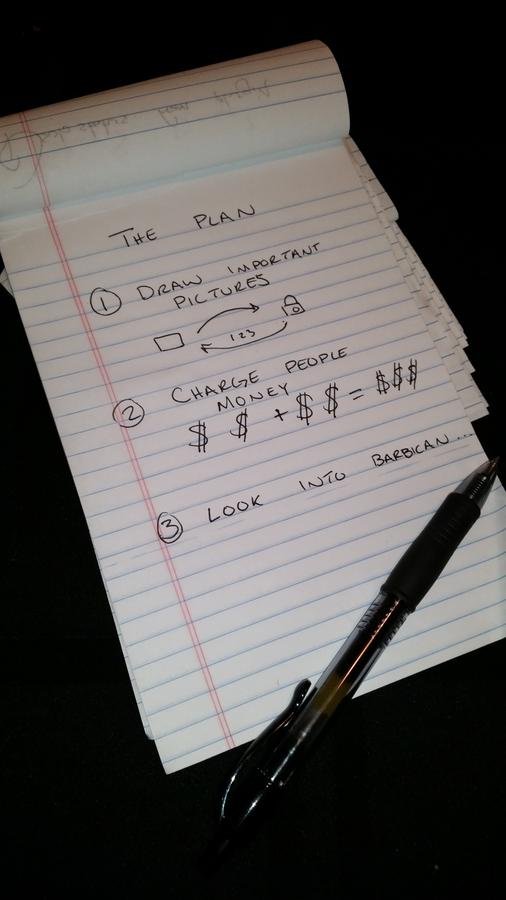 THE PLAN
1 DRAW IMPORTANT
PICTURES
123
2 CHARGE PEOPLE
MONEY
$ $ + $ $ = $$$
3 LOOK INTO BARBICAN...